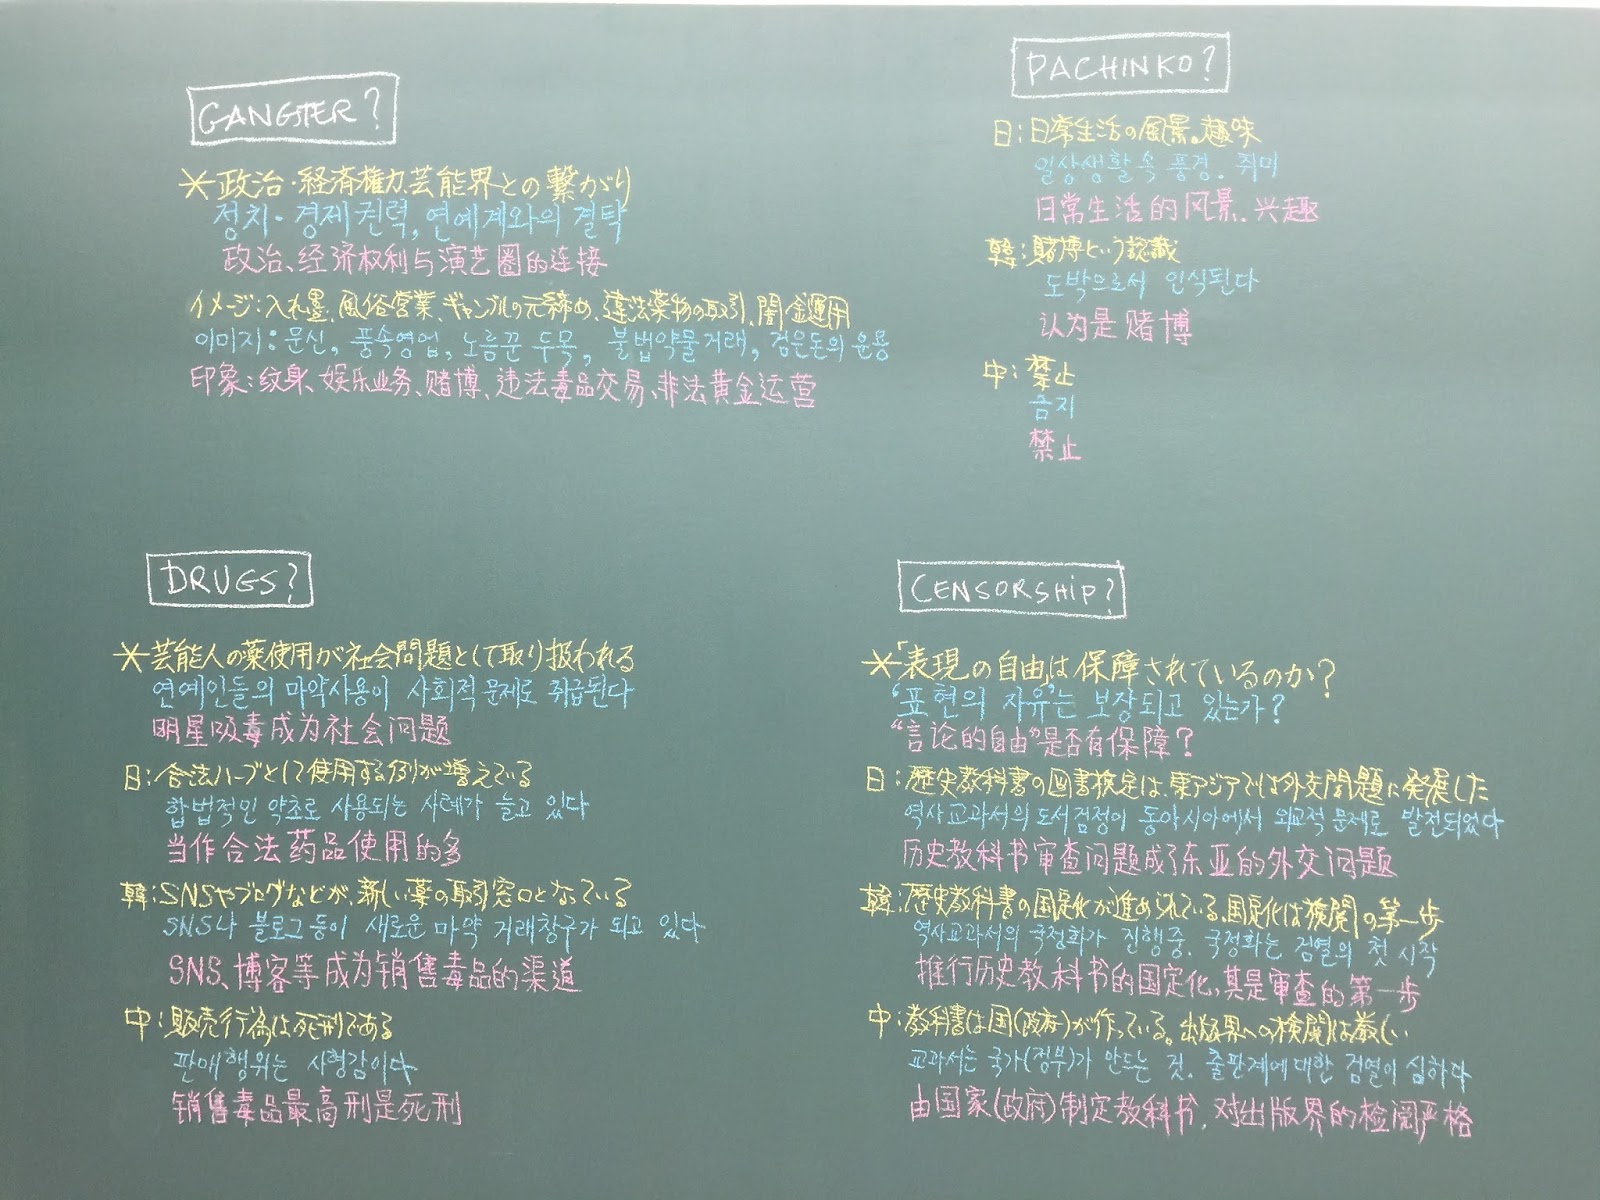 GANGSTER?
*政治・経済権力、芸能界との繋がり
정치·경제권력, 연예계와의 결탁
政治、经济权利与演艺圈的连接
イメージ：入れ墨、風俗営業、ギャンブルの元締め、違法薬物の取引、闇金運用
이미지: 문신, 풍속영업, 노름꾼 두목, 불법약물거래, 검은돈의 운용
印象：纹身、娱乐业务、赌博、违法毒品交易、非法黄金运营
PACHINKO?
日：日常生活の風景。趣味
일상생활 속 풍경. 취미
日常生活的风景.兴趣
韓：賭博という認識
도박으로서 인식된다
认为是赌博
中：禁止
금지
禁止
DRUGS?
*芸能人の薬使用が社会問題として取り扱われる
연예인들의 마약사용이 사회적 문제로 취급된다
明星吸毒成为社会问题
日：合法ハーブとして使用する例が増えている
합법적인 약초로 사용되는 사례가 늘고 있다
当作合法药品使用的多
韓：SNSやブログなどが、新しい薬の取引窓口となっている
SNS나 블로그 등이 새로운 마약 거래창구가 되고 있다
SNS、博客等成为销售毒品的渠道
中：販売行為は死刑である
판매행위는 사형감이다
销售毒品最高刑是死刑
CENSORSHIP?
*「表現の自由」は保障されているのか？
'표현의 자유'는 보장되고 있는가?
“言论的自由”是否有保障？
日：歴史教科書の図書検定は、東アジアでは外交問題に発展した
역사교과서의 도서검정이 동아시아에서 외교적 문제로 발전되었다
历史教科书审查问题成了东亚的外交问题
韓：歴史教科書の国定化が進められている。国定化は検閲の第一歩
역사교과서의 국정화가 진행중. 국정화는 검열의 첫 시작
推行历史教科书的国定化，其是审查的第一步
中：教科書は国(政府)が作っている。出版界への検閲は厳しい
교과서는 국가(정부)가 만드는 것. 출판계에 대한 검열이 심하다
由国家(政府)制定教科书.对出版界的检阅严格